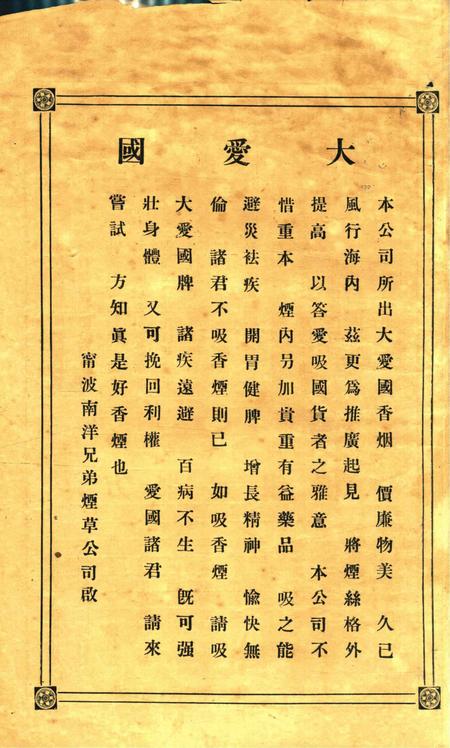 大愛國
本公司所出大愛國香烟　價廉物美　久已
風行海內　茲更爲推廣起見　將煙絲格外
提高　以答愛吸國貨者之雅意　本公司不
惜重本　煙內另加貴重有益藥品　吸之能
避災祛疾　開胃健脾　增長精神　愉快無
倫　諸君不吸香煙則已　如吸香煙　請吸
大愛國牌　諸疾遠避　百病不生　旣可强
壯身體　又可挽回利權　愛國諸君　請來
嘗試　方知眞是好香煙也
甯波南洋兄弟煙草公司啟